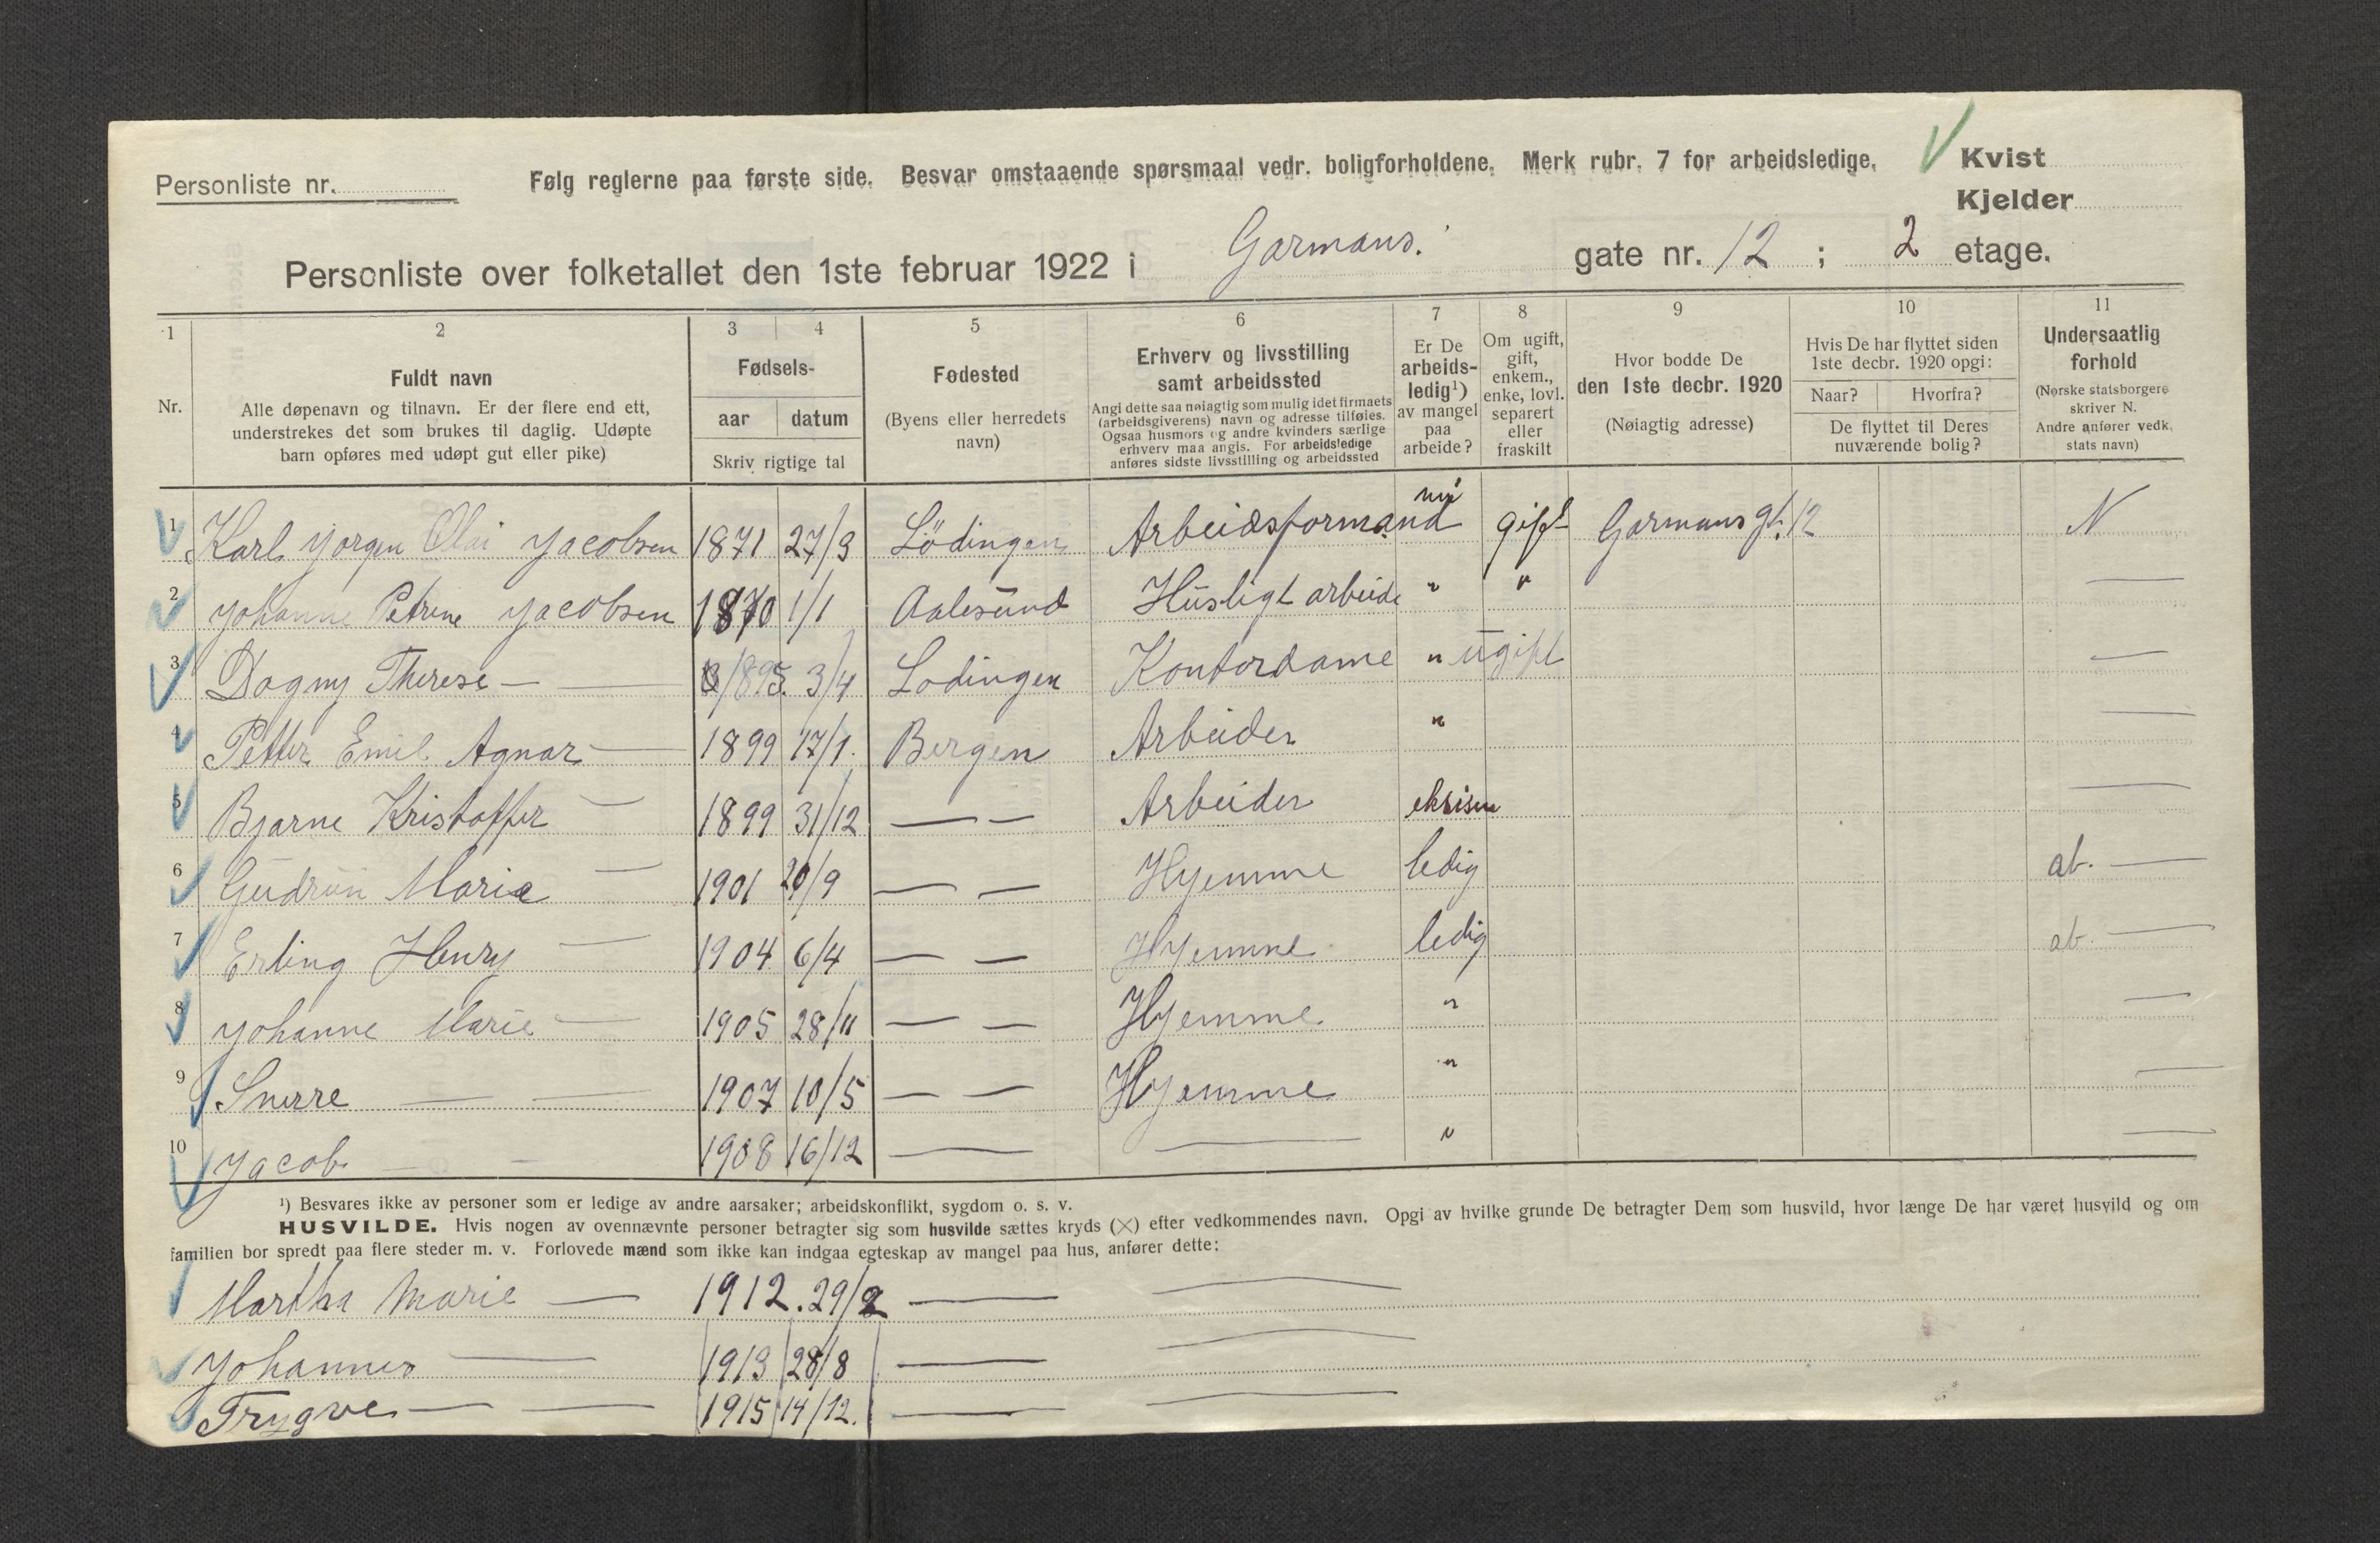 Personliste nr.
Følg reglerne paa første side. Besvar omstaaende spørsmaal vedr. boligforholdene. Merk rubr. 7 for arbeidsledige.
Kvist
Kjelder
Personliste over folketallet den 1ste februar 1922 i Garmans. gate nr. 12 ; 2 etage.
1 2 3 4 5 6 7 8 9 10 11
Nr.
Fuldt navn
Alle døpenavn og tilnavn. Er der flere end ett,
understrekes det som brukes til daglig. Udøpte
barn opføres med udøpt gut eller pike)
Fødsels-
aar datum
Skriv rigtige tal
Fødested
(Byens eller herredets
navn)
Erhverv og livsstilling
samt arbeidssted
Angi dette saa nøiagtig som mulig idet firmaets
(arbeidsgiverens) navn og adresse tilføies.
Ogsaa husmors og andre kvinders særlige
erhverv maa angis. For arbeidsledige
anføres sidste livsstilling og arbeidssted
Er De
arbeids-
ledig¹)
av mangel
paa
arbeide?
Om ugift,
gift,
enkem.,
enke, lovl.
separert
eller
fraskilt
Hvor bodde De
den 1ste decbr. 1920
(Nøiagtig adresse)
Hvis De har flyttet siden
1ste decbr. 1920 opgi:
Naar? Hvorfra?
De flyttet til Deres
nuværende bolig?
Undersaatlig
forhold
(Norske statsborgere
skriver N.
Andre anfører vedk.
stats navn)
1 Karl Jørgen Olai Jacobsen 1871 27/3 Lödingen Arbeidsformand gift Garmans gt. 12 N
2 Johanne Petrine Jacobsen 1870 1/1 Aalesund Husligt arbeide " " —
3 Dagny Therese — — 1895. 3/4 Lodingen Kontordame " ugift —
4 Petter Emil Agnar — 1899 17/1. Bergen Arbeider " —
5 Bjarne Kristoffer — 1899 31/12 — — Arbeider —
6 Gudrun Marie — 1901 20/9 — — Hjemme ledig ab. —
7 Erling Henry — 1904 6/4 — — Hjemme ledig ab. —
8 Johanne Marie — 1905 28/11 — — Hjemme " —
9 Snerre — — 1907 10/5 — — Hjemme " —
10 Jacob — - 1908 16/12 — — " —
¹) Besvares ikke av personer som er ledige av andre aarsaker; arbeidskonflikt, sygdom o. s. v.
HUSVILDE. Hvis nogen av ovennævnte personer betragter sig som husvilde sættes kryds (×) efter vedkommendes navn. Opgi av hvilke grunde De betragter Dem som husvild, hvor længe De har været husvild og om
familien bor spredt paa flere steder m. v. Forlovede mænd som ikke kan indgaa egteskap av mangel paa hus, anfører dette:
Martha Marie — 1912. 29/2 — —
Johannes — 1913 28/8 — —
Trygve — — 1915 14/12. — —